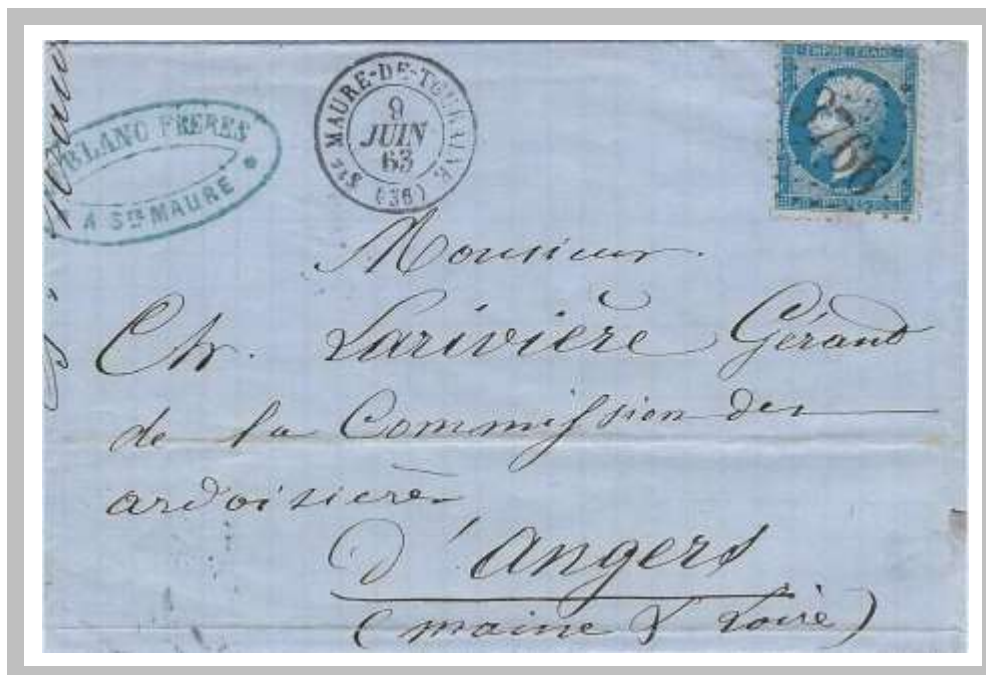 BLANC FRERES
A STE MAURE
STE MAURE-DE-TOURAINE
9
JUIN
63
(36)
EMPIRE FRANC
Monsieur
Ch. Larivière Gérant
de la Commission des
ardoisières
d'Angers
(maine & Loire)